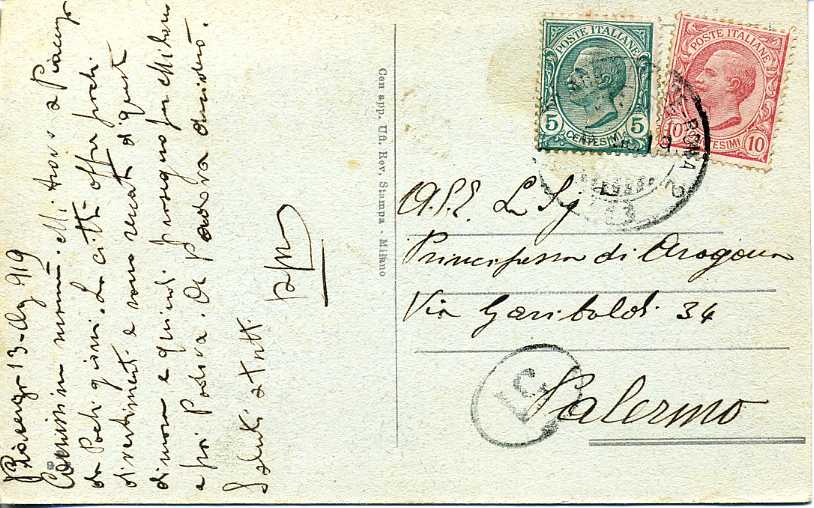 Piacenza 13-Ag 919
Carissima mamma. Mi trovo a Piacenza
da pochi giorni. La città offre pochi
divertimenti e sono seccato di questa
dimora e quindi proseguo per Milano
e poi Padova. Da Padova deciderò.
Saluti a tutti
Con app. Uff. Rev. Stampa - Milano
POSTE ITALIANE
5 CENTESIMI 5
POSTE ITALIANE
10 CENTESIMI 10
ROMA
A.S.E. La Sig
Principessa di Aragona
Via Garibaldi 34
Palermo
51